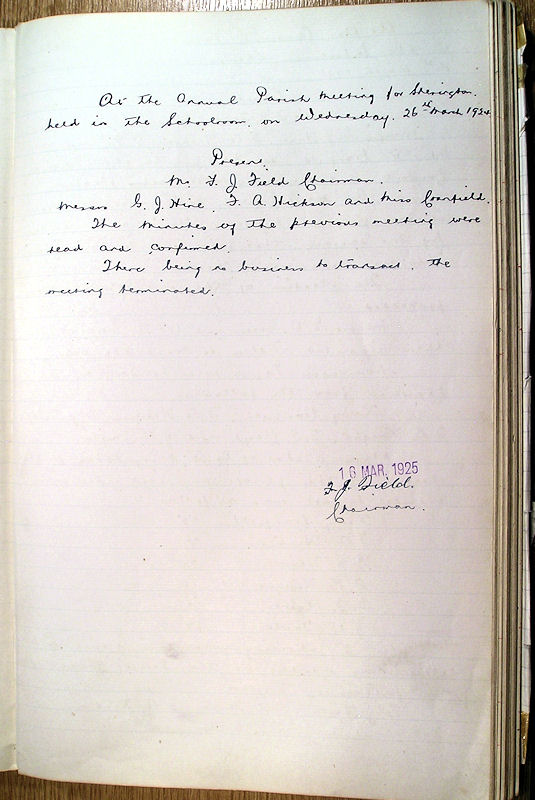 At the Annual Parish Meeting for Sherington
held in the Schoolroom on Wednesday, 26th March 1924
Present
Mr. F. J. Field Chairman.
Messrs G. J. Hine, F. A. Hickson and Miss Cranfield.
The minutes of the previous meeting were
read and confirmed.
There being no business to transact, the
meeting terminated.
16 MAR. 1925
F. J. Field.
Chairman.